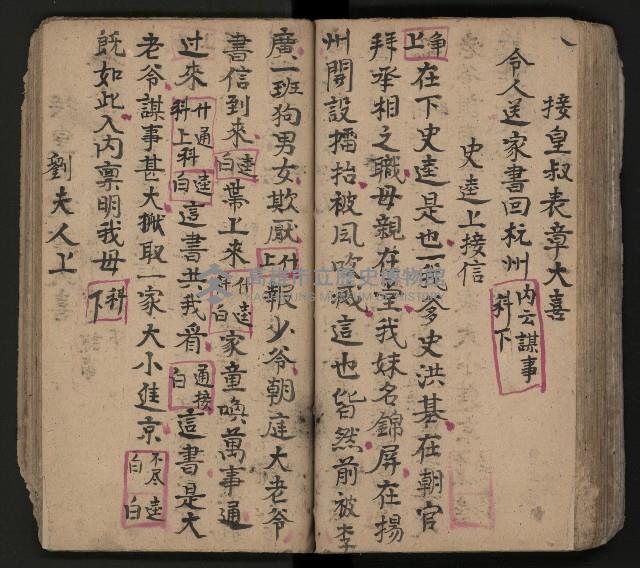 接皇叔表章大喜
令人送家書回杭州 內云謀事 科下
史逵上接信
淨上 在下史逵是也 我爹史洪基在朝官
拜丞相之職母親在堂我妹名錦屏在揚
州開設擂抬被 這也皆然前被李
廣一班狗男女欺厭 什上 報少爷朝庭大老爷
書信到來 逵白 葉上來 什逵科白 家童喚萬事通
过來 什通逵科上科白 這書共我看 通接白 這書是大
老爷謀事甚大 取一家大小進京 不尽逵白白
既如此入內禀明我母 科下
劉夫人上
高雄市立歷史博物館
KAOHSIUNG MUSEUM OF HISTORY